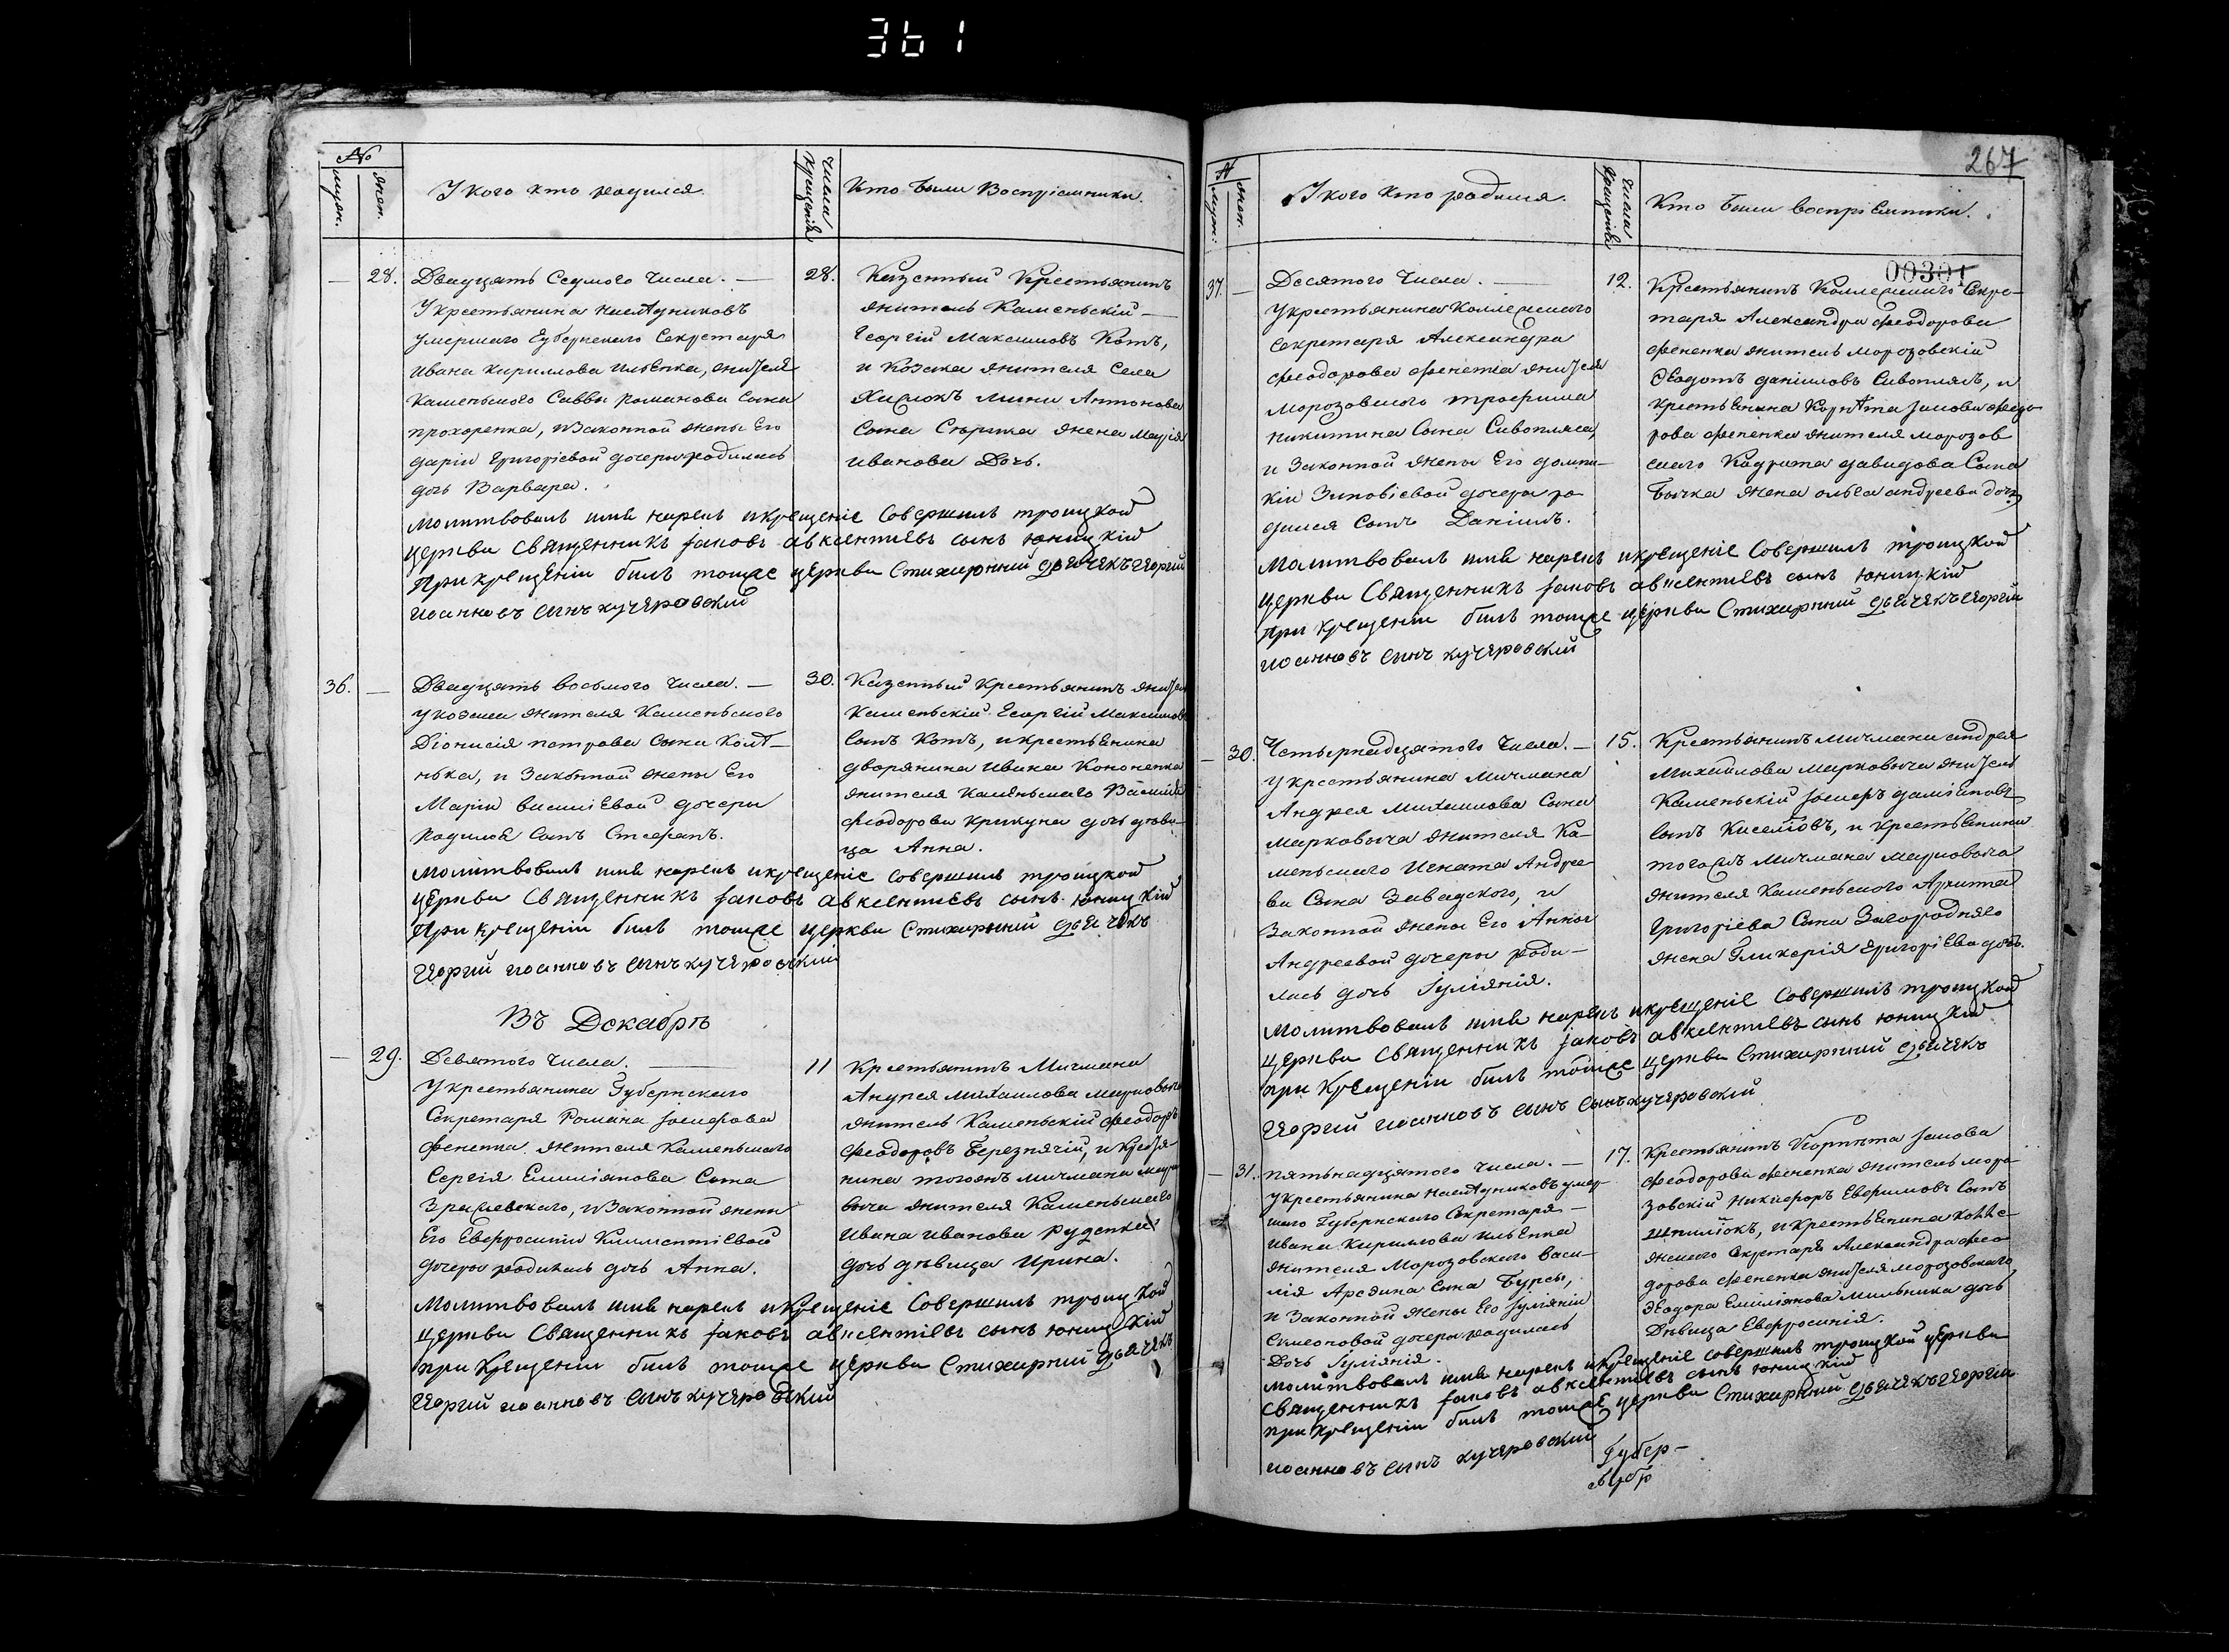 361
№
муж.
жен.
У кого кто родился.
Числа
крещенія
Кто были Воспріемники.
— 28. Двадцать Седмого Числа. —
У крестьянина наследниковъ
умершаго Губернскаго Секретаря
Ивана Кириллова Ильенка, жителя
Каменьского Саввы Романова Сына
Прохоренка, и Законной жены Его
Даріи Григоріевой дочери родилась
дочь Варвара.
28. Казенный Крестьянинъ
житель Каменьскій
Георгій Максимовъ Котъ,
и Козака жителя Села
Антонова
Сына жена Марія
Иванова Дочь.
Молитвовалъ имя нарекъ и крещеніе Совершилъ троицкой
церкви Священникъ Іаковъ Авксентіевъ сынъ Юницкій
При крещеніи билъ тоіже церкви Стихирний дьячекъ Георгій
Иоанновъ Сынъ Кучеровский
36. — Двадцять восьмого Числа. —
У козака жителя Каменьского
Діонисія петрова Сына
и Законной жены Его
Маріи Василіевой дочери
родился Сынъ Стефанъ.
30. Казенный Крестьянинъ житель
Каменьскій Георгій Максимовъ
Сынъ Котъ, и крестьянина
дворянина Ивана Кононенка
жителя Каменьскаго Василія
Феодорова Крикуна дочь дѣви-
ца Анна.
Молитвовалъ имя нарекъ и крещеніе Совершилъ троицкой
церкви Священникъ Іаковъ Авксентіевъ сынъ Юницкій
При крещеніи билъ тоіже церкви Стихирний дьячекъ
Георгій Иоанновъ Сынъ Кучеровский
Въ Декабрѣ
— 29. Девятого Числа.
У крестьянина Губернскаго
Секретаря Романа Іосифова
Фененка жителя Каменьскаго
Сергія Емиліянова Сына
и Законной жены
Его Евфросиніи Климентіевой
дочери родилась дочь Анна.
11 Крестьянинъ Мичмана
Андрея Михайлова Марковича
житель Каменьскій Феодоръ
Феодоровъ Березнячій, и Крестья-
нина тогожъ мичмана Марко-
вича жителя Каменьскаго
Ивана Иванова Руденка
дочь дѣвица Ирина.
Молитвовалъ имя нарекъ и Крещеніе Совершилъ троицкой
церкви Священникъ Іаковъ Авксентіевъ сынъ Юницкій
при Крещеніи билъ тоіже церкви Стихирний дьячекъ
Георгій Иоанновъ Сынъ Кучеровский
267
00301
№
муж.
жен.
У кого кто родился.
Числа
крещенія
Кто были воспріемники.
37. — Десятого Числа.
У крестьянина Коллежского
Секретаря Александра
Феодорова Фененка жителя
Морозовского Трофима
Никитина Сына Сивопляса,
и Законной жены Его Домни-
кіи Зиновіевой дочери ро-
дился Сынъ Даніилъ.
12. Крестьянинъ Коллежского Секре-
таря Александра Феодорова
Фененка житель Морозовскій
Ѳедотъ Даніиловъ Сивоплясъ, и
крестьянина Корнѣта Іакова Феодо-
рова Фененка жителя Морозов
скаго Кодрата Давидова Сына
Бычка жена Ольга Андреева дочь
Молитвовалъ имя нарекъ и крещеніе Совершилъ троицкой
Церкви Священникъ Іаковъ Авксентіевъ сынъ Юницкій
При Крещеніи билъ тоіже церкви Стихирний дьячекъ Георгій
Иоанновъ Сынъ Кучеровский
— 30. Четырнадцятого Числа. —
У Крестьянина Мичмана
Андрея Михаилова Сына
Марковича жителя Ка-
меньского Игната Андрее-
ва Сына Завадского, и
Законной жены Его Анны
Андреевой дочери роди-
лась дочь Іуліянія.
15. Крестьянинъ Мичмана Андрея
Михайлова Марковича житель
Каменьскій Іосифъ Даміановъ
Сынъ Киселіовъ, и Крестьянина
тогожъ Мичмана Марковича
жителя Каменьского Архипа
Григоріева Сына Загороднего
жена Гликерія Григоріева дочь.
Молитвовалъ имя нарекъ и крещеніе Совершилъ троицкой
Церкви Священникъ Іаковъ Авксентіевъ сынъ Юницкій
при Крещеніи билъ тоіже церкви Стихирний дьячекъ
Георгій Иоанновъ Сынъ Сынъ Кучеровский
— 31. Пятьнадцятого Числа. —
У Крестьянина наследниковъ умер-
шаго Губернскаго Секретаря —
Ивана Кириллова Ильенка
жителя Морозовского Васи-
лія Сына Бурсы,
и Законной жены Его Іуліяніи
Симеоновой дочери родилась
Дочь Іуліянія.
17. Крестьянинъ Корнѣта Іакова
Феодорова Фененка житель Моро-
зовскій Никифоръ Евфимовъ Сынъ
Шпиліокъ, и Крестьянина Колле-
жского Секретаря Александра Фео-
дорова Фененка жителя Морозовскаго
Ѳеодора Емиліянова Мильника дочь
Дѣвица Евфросинія.
Молитвовалъ имя нарекъ и Крещеніе Совершилъ троицкой церкви
Священникъ Іаковъ Авксентіевъ сынъ Юницкій
при Крещеніи билъ тоіже церкви Стихирний дьячекъ Георгій
Иоанновъ Сынъ Кучеровский
Губер-